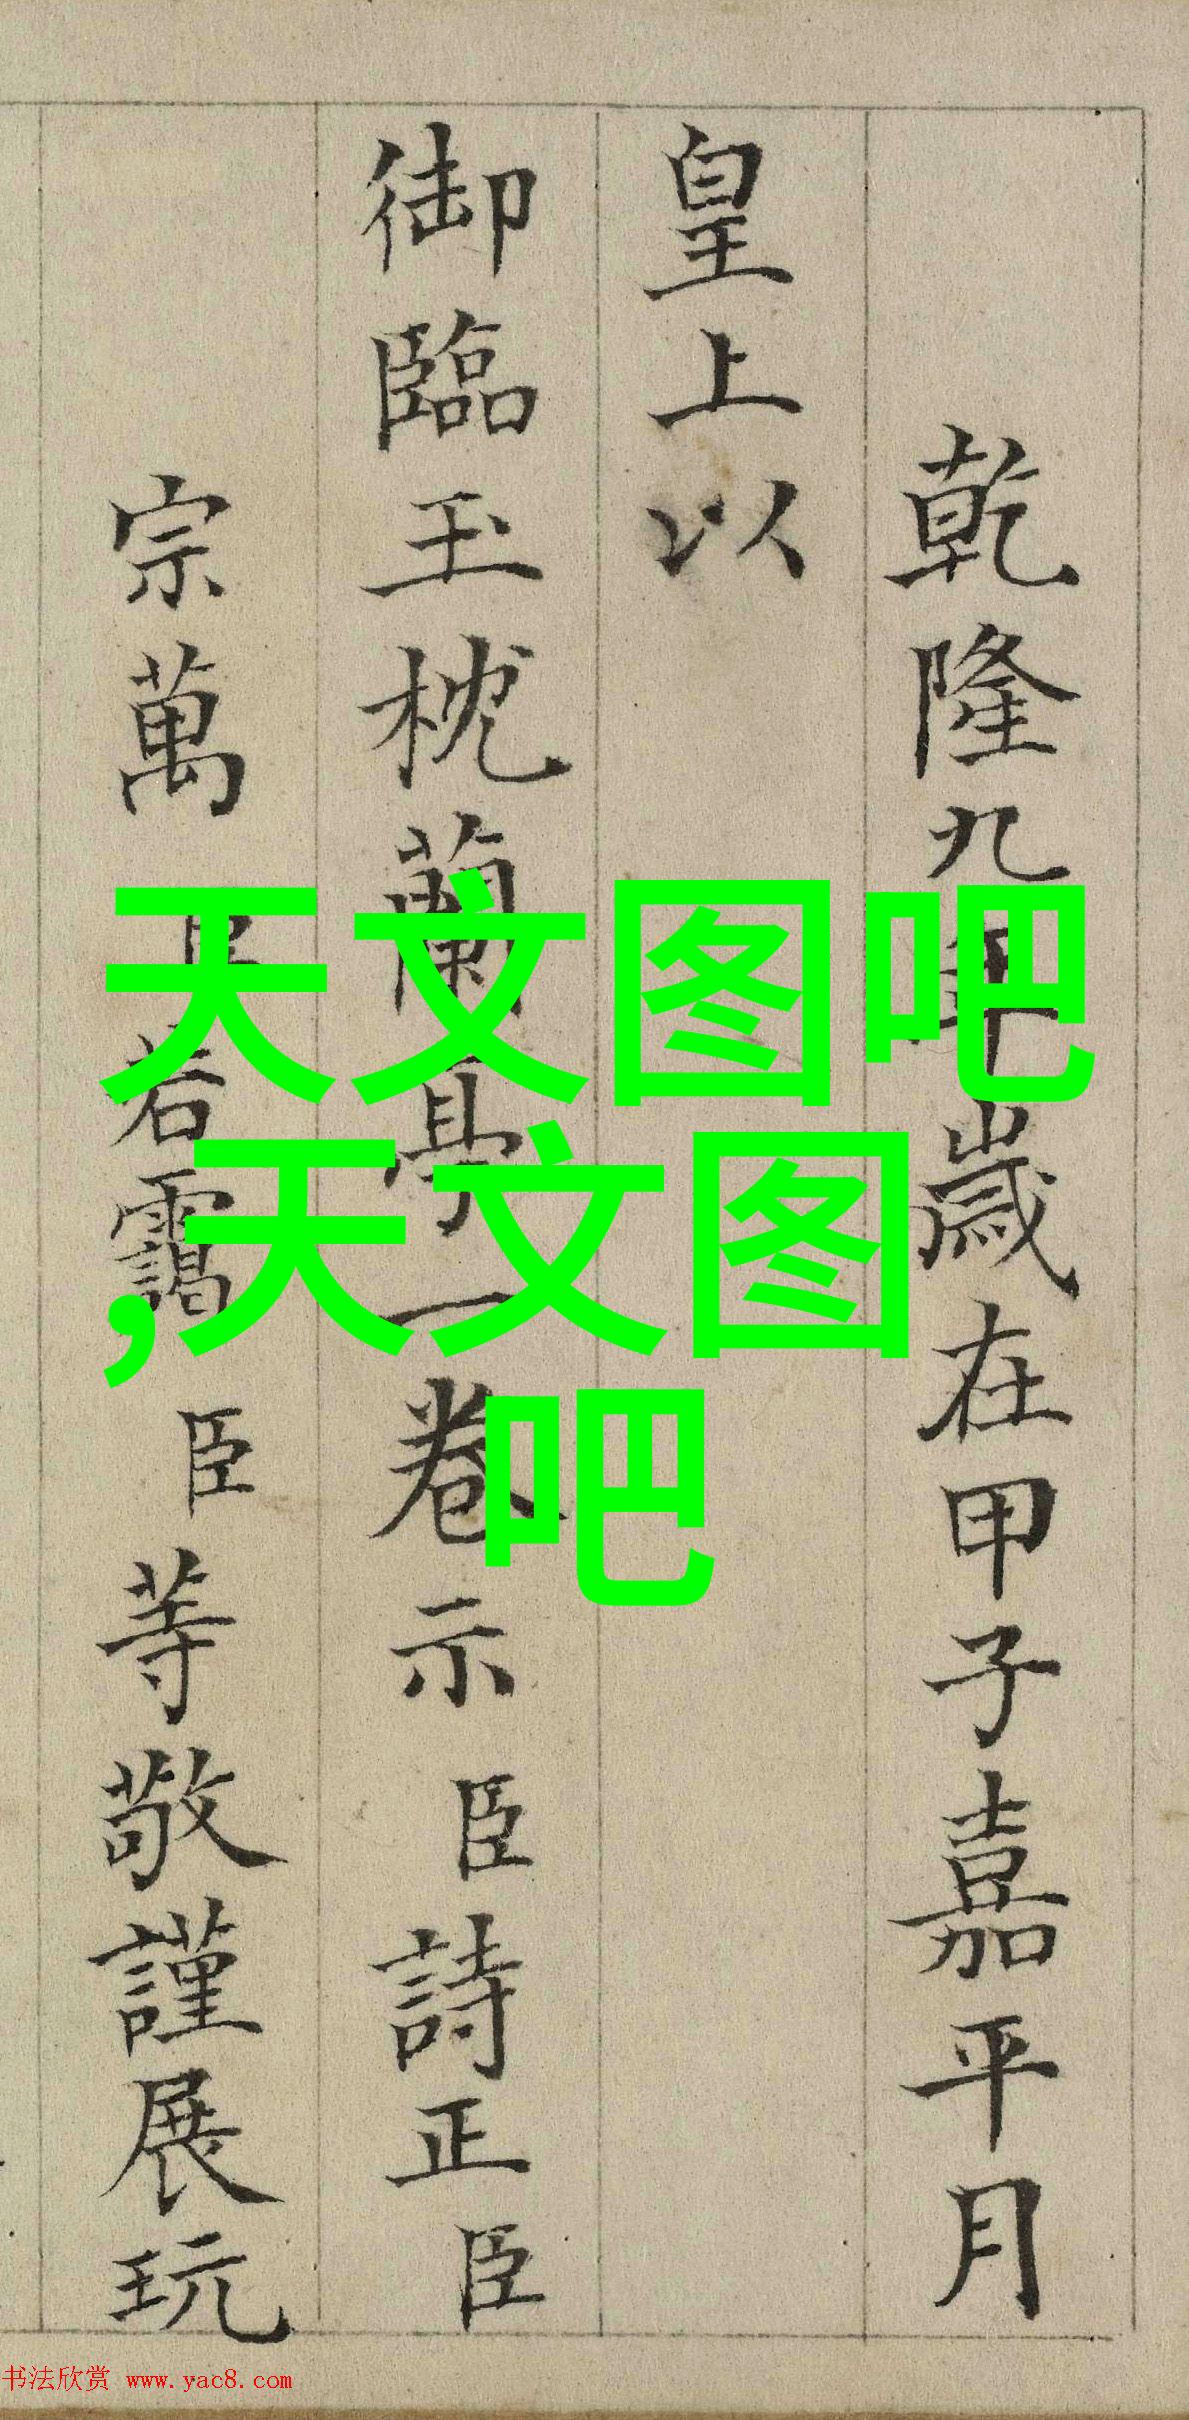 乾隆九年歲在甲子嘉平月
皇上以
御臨玉枕蘭亭一卷示臣詩正臣
宗萬臣若靄臣等敬謹展玩
天文图吧
,天文图
吧
书法欣赏 www.yac8.com